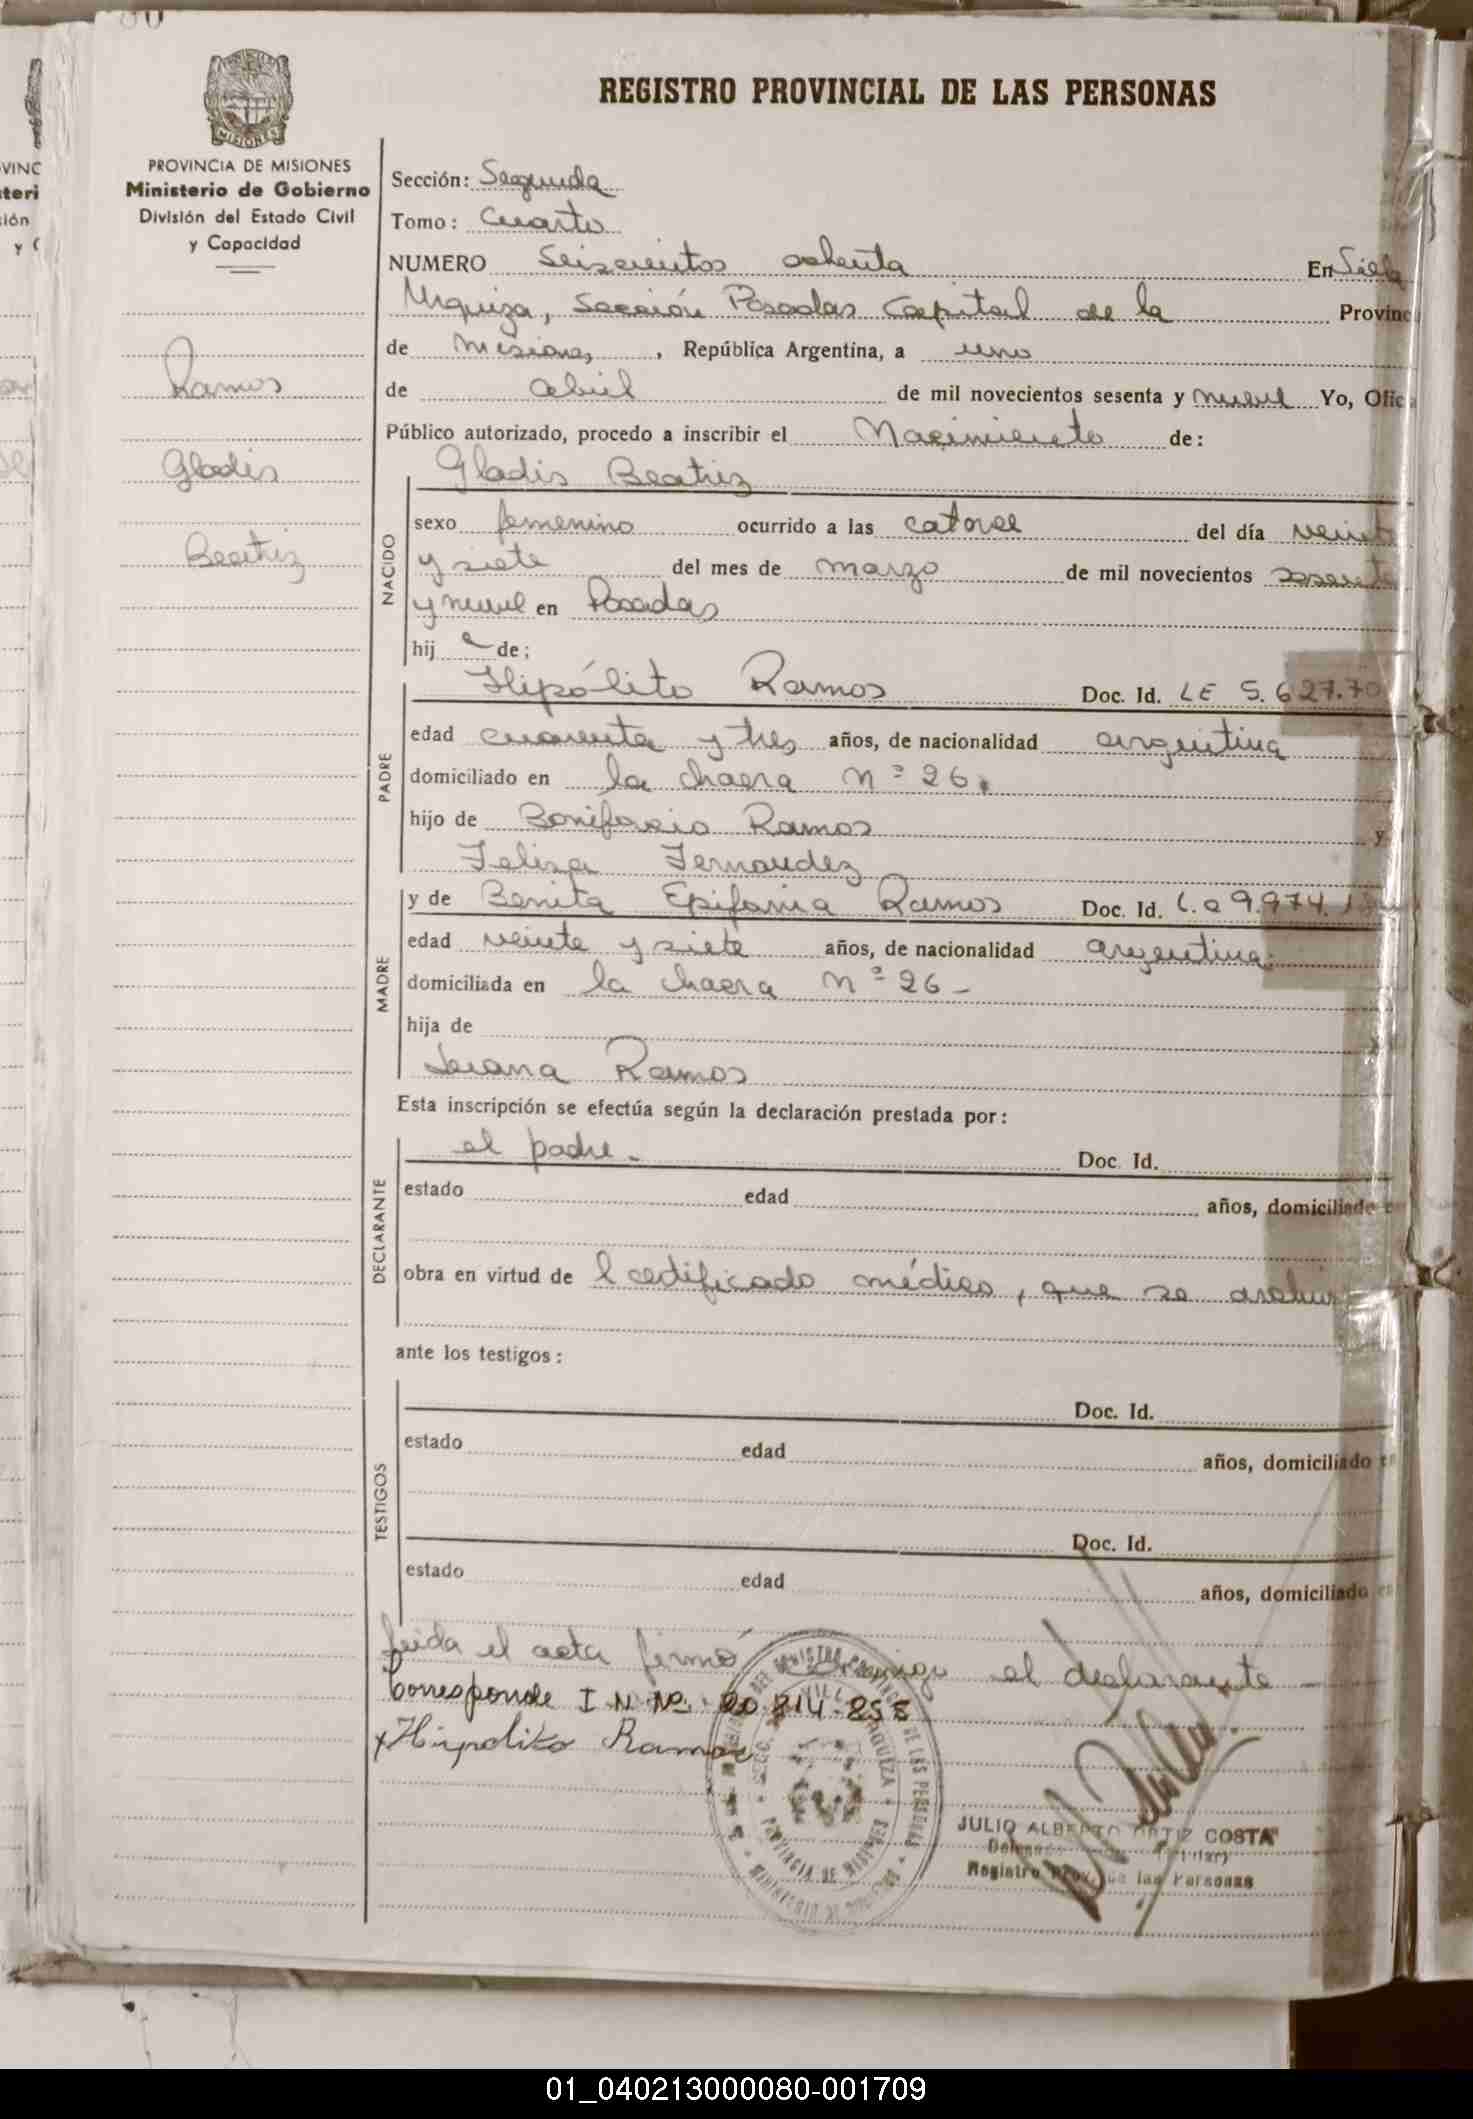 REGISTRO PROVINCIAL DE LAS PERSONAS
MISIONES
PROVINCIA DE MISIONES
Ministerio de Gobierno
División del Estado Civil
y Capacidad
Ramos
Gladis
Beatriz
Sección: Segunda
Tomo: Cuarto
NUMERO Seiscientos ochenta En Villa
Urquiza, Sección Posadas Capital de la Provinc
de Misiones, República Argentina, a uno
de abril de mil novecientos sesenta y nueve Yo, Ofic
Público autorizado, procedo a inscribir el Nacimiento de:
NACIDO
Gladis Beatriz
sexo femenino ocurrido a las catorce del día veinte
y siete del mes de marzo de mil novecientos sesenta
y nueve en Posadas
hij a de:
PADRE
Hipólito Ramos Doc. Id. LE 5.627.70
edad cuarenta y tres años, de nacionalidad argentina
domiciliado en la chacra nº 26.
hijo de Bonifacio Ramos y
Feliza Fernandez
MADRE
y de Benita Epifania Ramos Doc. Id. L.C 9.974.
edad veinte y siete años, de nacionalidad argentina
domiciliada en la chacra nº 26 -
hija de
Ramos
Esta inscripción se efectúa según la declaración prestada por:
DECLARANTE
el padre. Doc. Id.
estado edad años, domiciliado
obra en virtud de l certificado médico, que se archiv
ante los testigos:
TESTIGOS
Doc. Id.
estado edad años, domiciliado
Doc. Id.
estado edad años, domiciliado
Leida el acta firmó conmigo el declarante -
Corresponde I N Nº 20.814.855
x Hipolito Ramos
PROVINCIA DE MISIONES
JULIO ALBERTO ORTIZ COSTA
Registro Prov. de las Personas
01_040213000080-001709